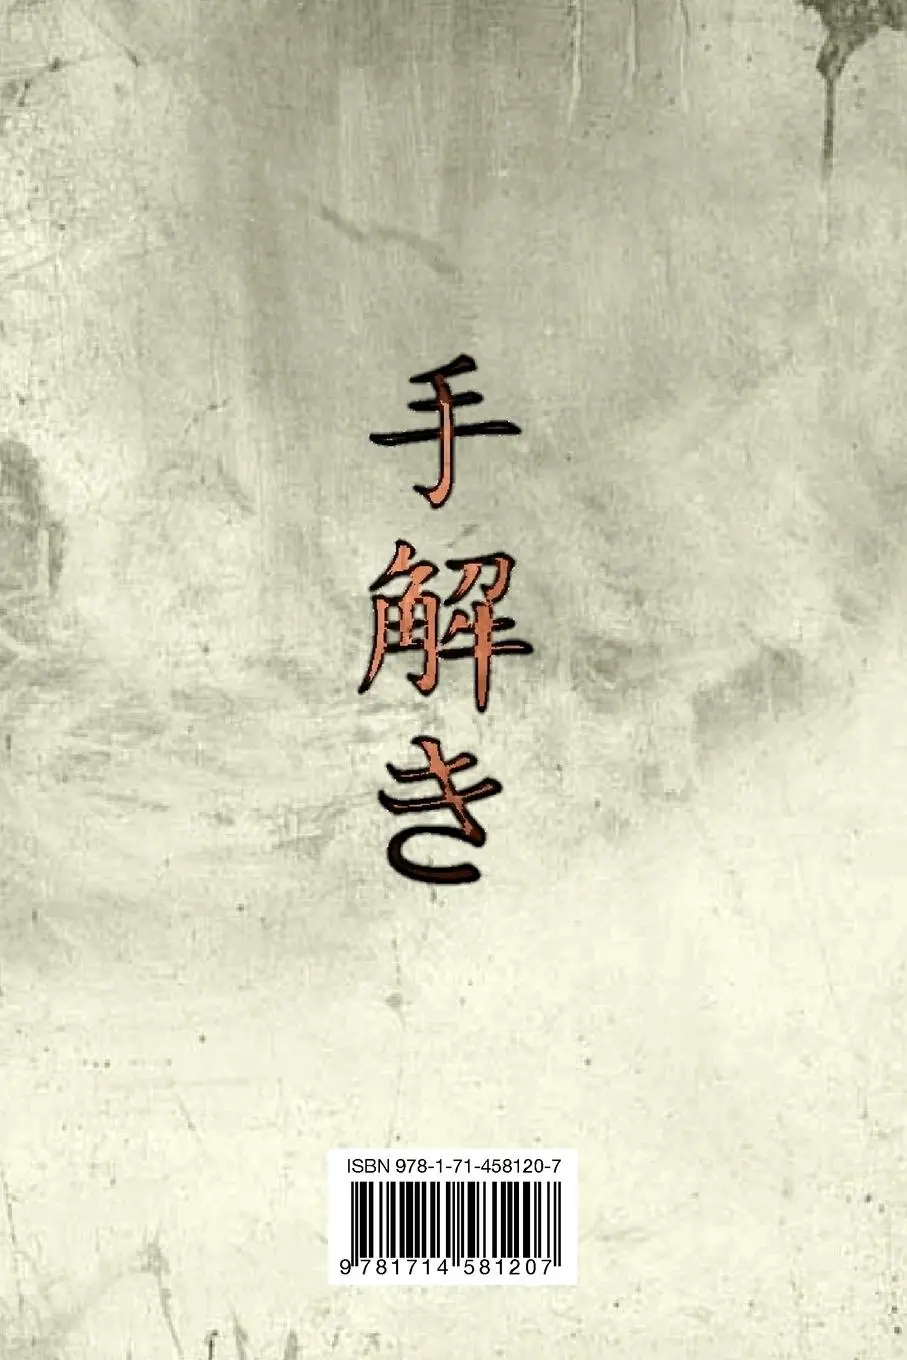 手解き
ISBN 978-1-71-458120-7
9 781714 581207